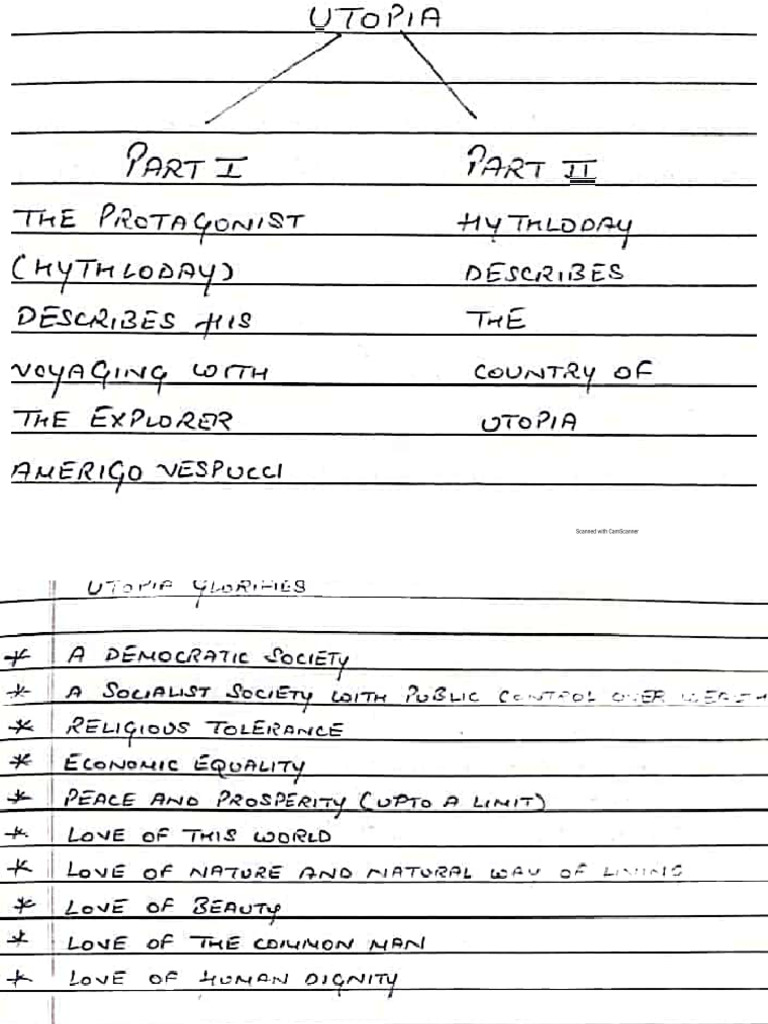 UTOPIA
PART I
THE PROTAGONIST
(HYTHLODAY)
DESCRIBES HIS
VOYAGING WITH
THE EXPLORER
AMERIGO VESPUCCI
PART II
HYTHLODAY
DESCRIBES
THE
COUNTRY OF
UTOPIA
Scanned with CamScanner
UTOPIA GLORIFIES
* A DEMOCRATIC SOCIETY
* A SOCIALIST SOCIETY WITH PUBLIC CONTROL OVER
* RELIGIOUS TOLERANCE
* ECONOMIC EQUALITY
* PEACE AND PROSPERITY (UPTO A LIMIT)
* LOVE OF THIS WORLD
* LOVE OF NATURE AND NATURAL WAY OF LIVING
* LOVE OF BEAUTY
* LOVE OF THE COMMON MAN
* LOVE OF HUMAN DIGNITY